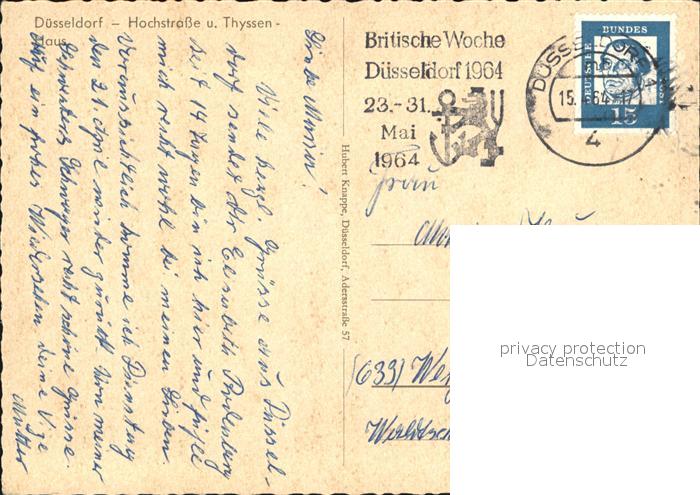 Düsseldorf – Hochstraße u. Thyssen -
Haus
Liebe Maria!
Viele herzl. Grüsse aus Düssel-
dorf sendet dir Elisabeth
seit 14 Tagen bin ich hier und fühle
mich recht wohl bei meinen Lieben.
Voraussichtlich komme ich Dienstag
den 21. April wieder zurück. Von meiner
Schwager recht schöne Grüsse.
Auf ein frohes Wiedersehen deine
Mutter
Hubert Knappe, Düsseldorf, Adersstraße 57
Britische Woche
Düsseldorf 1964
23.-31.
Mai
1964
DÜSSELDORF
15. 4.64-17
4
DEUTSCHE
BUNDES
POST
15
Frau
(633)
privacy protection
Datenschutz